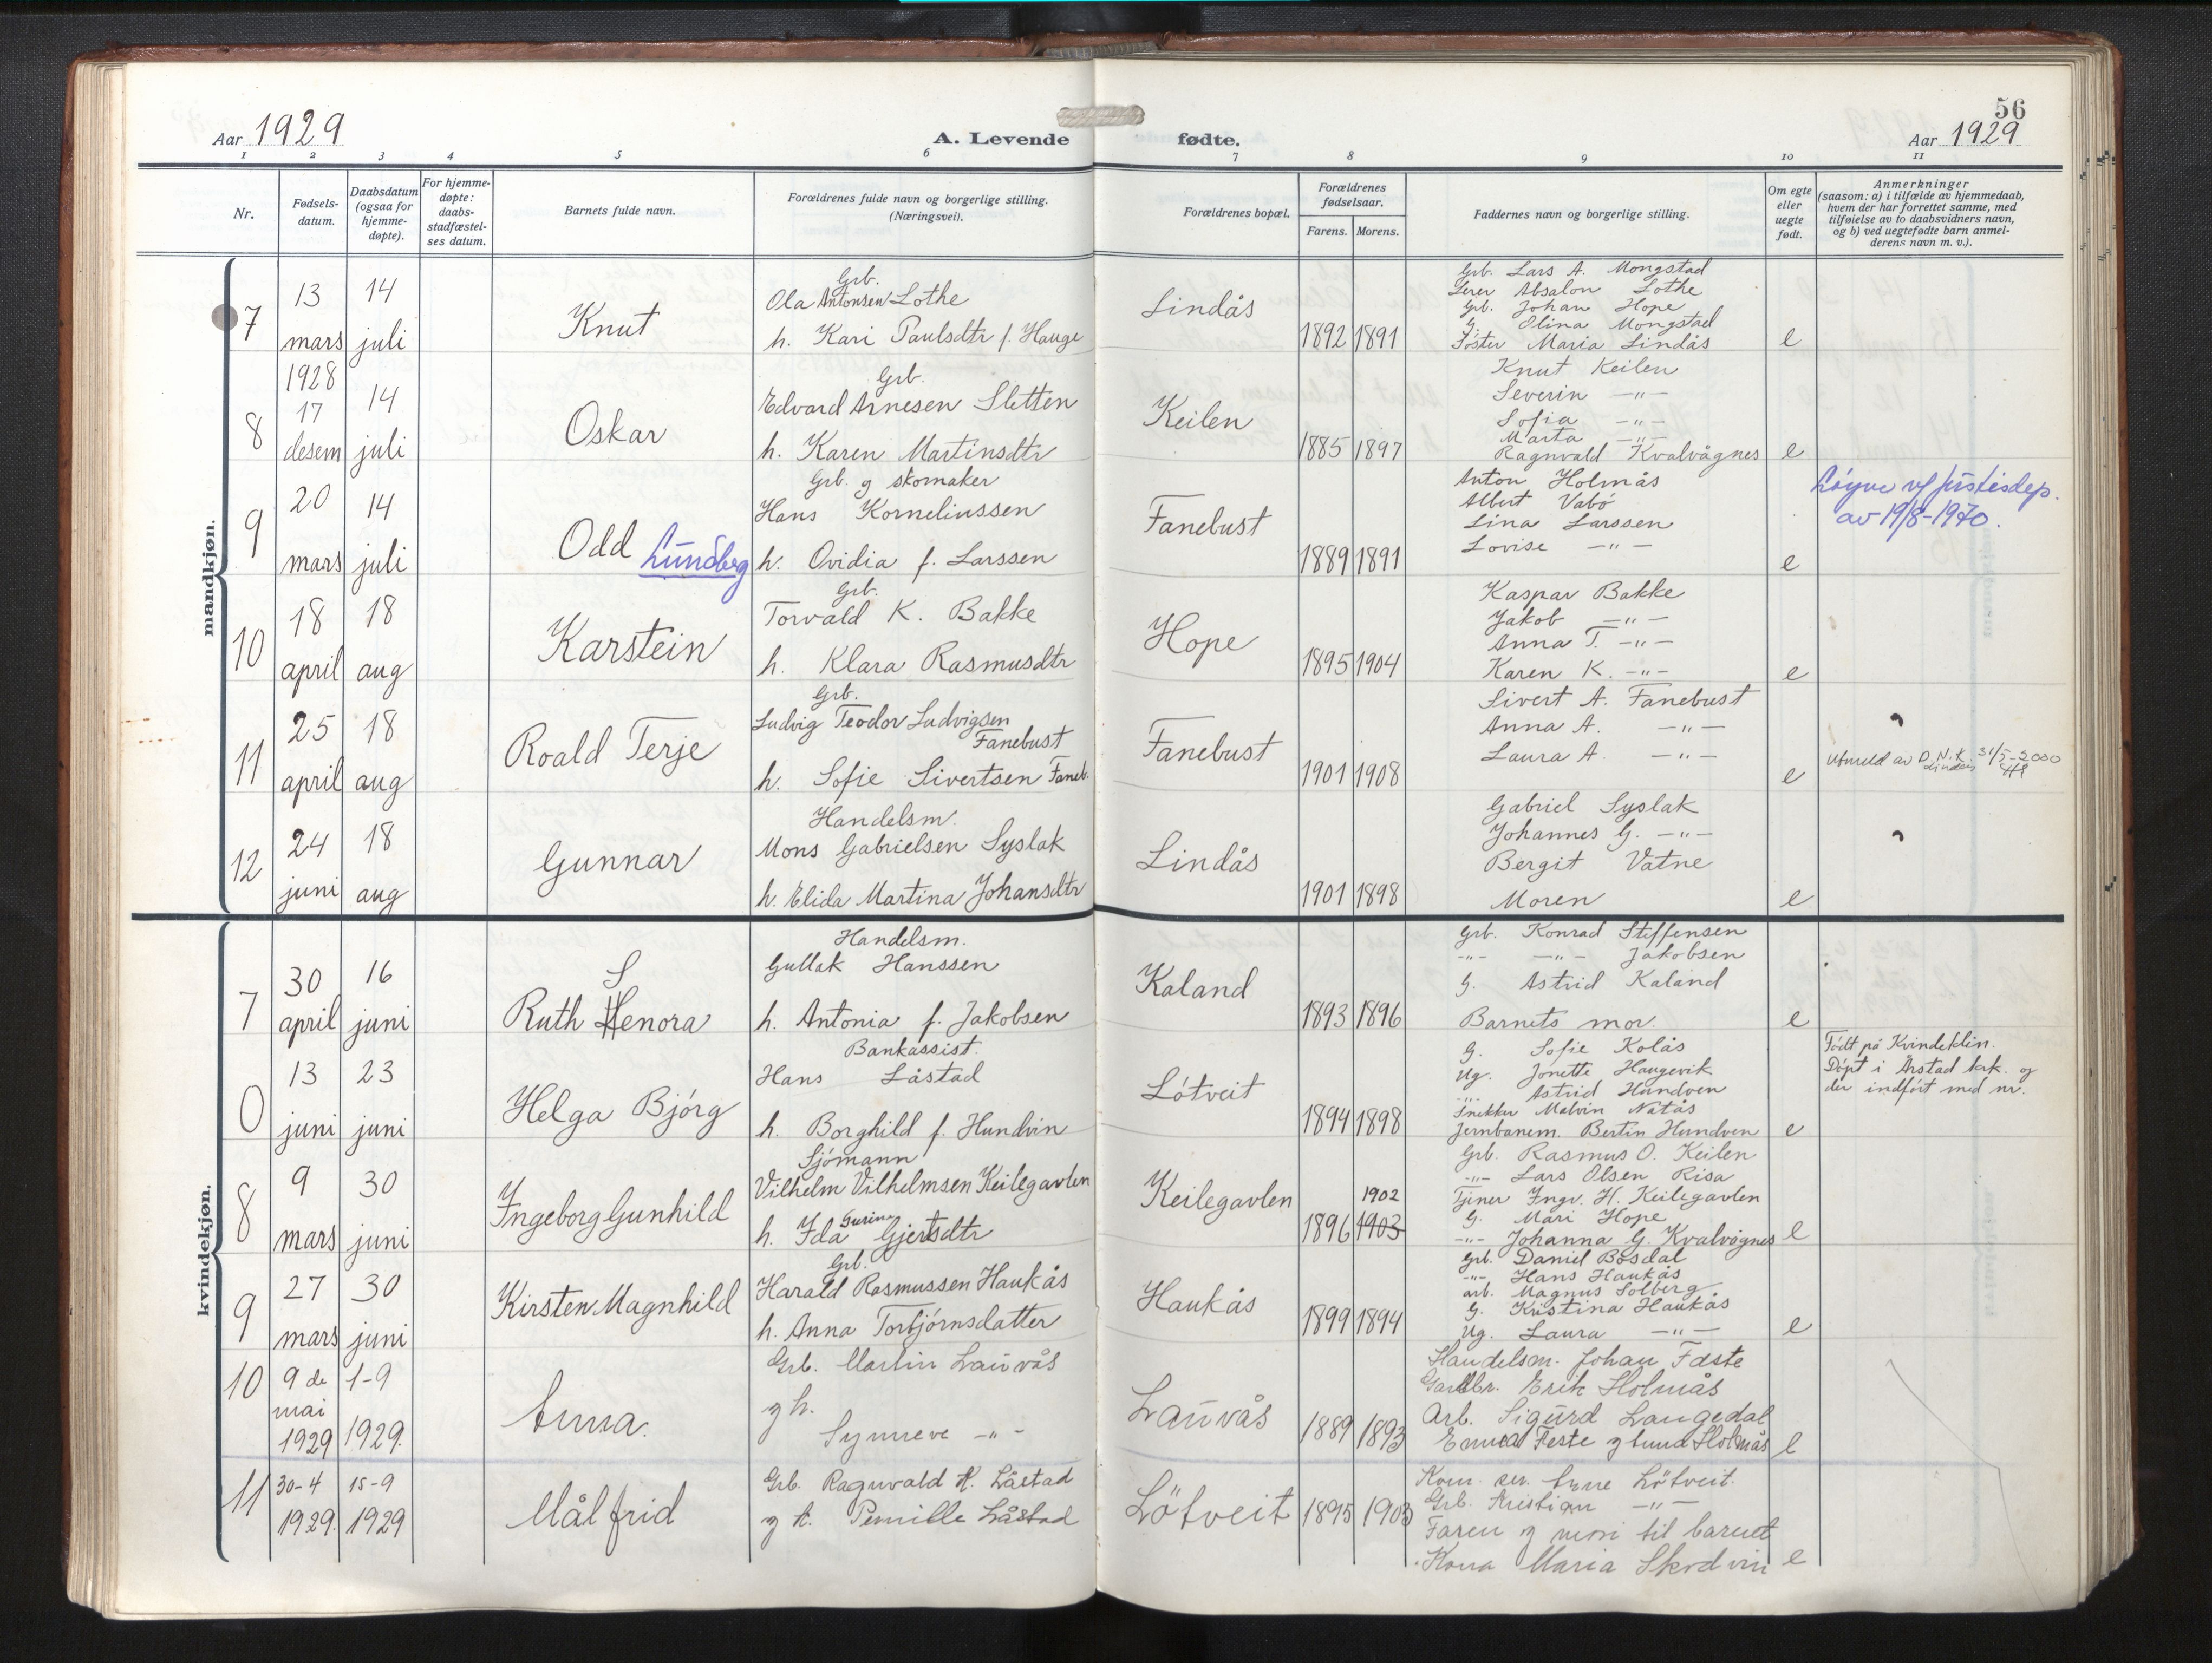 56
Aar 1929
A. Levende
fødte.
Aar 1929
1 2 3 4 5 6 7 8 9 10 11
Nr.
Fødsels-
datum.
Daabsdatum
(ogsaa for
hjemme-
døpte).
For hjemme-
døpte:
daabs-
stadfæstel-
ses datum.
Barnets fulde navn.
Forældrenes fulde navn og borgerlige stilling.
(Næringsvei).
Forældrenes bopæl.
Forældrenes
fødselsaar.
Farens. Morens.
Faddernes navn og borgerlige stilling.
Om egte
eller
uegte
født.
Anmerkninger
(saasom: a) i tilfælde av hjemmedaab,
hvem der har forrettet samme, med
tilføielse av to daabsvidners navn,
og b) ved uegtefødte barn anmel-
derens navn m. v.).
mandkjøn.
7
13
mars
14
juli
Knut
Grb.
Ola Antonsen Lothe
h. Kari Paulsdtr f. Hauge
Lindås
1892 1891
Grb. Lars A. Mongstad
Lerer Absalon Lothe
Grb. Johan Hope
G. Olina Mongstad
Foster Maria Lindås
e
8
1928
17
desem
14
juli
Oskar
Grb.
Edvard Arnesen Sletten
h. Karen Martinsdtr
Keilen
1885 1897
Knut Keilen
Severin —"—
Sofia —"—
Marta —"—
Ragnvald Kvalvågnes
e
9
20
mars
14
juli
Odd Lundberg
Grb. og skomaker
Hans Korneliussen
h. Ovidia f. Larssen
Fanebust
1889 1891
Anton Holmås
Albert Vabø
Lina Larssen
Lovise —"—
e
Løyve av justisdep.
av 19/8-1970.
10
18
april
18
aug
Karstein
Grb.
Torvald K. Bakke
h. Klara Rasmusdtr
Hope
1895 1904
Kaspar Bakke
Jakob —"—
Anna T. —"—
Karen K. —"—
e
11
25
april
18
aug
Roald Terje
Grb.
Ludvig Teodor Ludvigsen
Fanebust
h. Sofie Sivertsen Faneb.
Fanebust
1901 1908
Sivert A. Fanebust
Anna A. —"—
Laura A. —"—
e
Utmeld av D.N.K. 31/5-2000
Lindås
12
24
juni
18
aug
Gunnar
Handelsm.
Mons Gabrielsen Syslak
h. Elida Martina Johansdtr
Lindås
1901 1898
Gabriel Syslak
Johannes G. —"—
Bergit Vatne
Moren
e
kvindekjøn.
7
30
april
16
juni
S
Ruth Lenora
Handelsm.
Gullak Hanssen
h. Antonia f. Jakobsen
Kaland
1893 1896
Grb. Konrad Steffensen
—"— —"— Jakobsen
G. Astrid Kaland
Barnets mor.
e
0
13
juni
23
juni
Helga Bjórg
Bankassist.
Hans Låstad
h. Borghild f. Hundvin
Lótveit
1894 1898
G. Sofie Kolås
Ug. Jonette Haugevik
—"— Astrid Hundven
Snikker Malvin Natås
Jernbanem. Bertin Hundven
e
Födt på Kvindeklin.
Döpt i Årstad kirk. og
der indfört med nr.
8
9
mars
30
juni
Ingeborg Gunhild
Sjómann
Vilhelm Vilhelmsen Keilegavlen
h. Ida Gurine Gjertsdtr
Keilegavlen
1902
1896 1903
Grb. Rasmus O. Keilen
—"— Lars Olsen Risa
Tjener Ingv. H. Keilegavlen
G. Mari Hope
—"— Johanna G. Kvalvågnes
e
9
27
mars
30
juni
Kirsten Magnhild
Grb.
Harald Rasmussen Haukås
h. Anna Torbjórnsdatter
Haukås
1899 1894
Grb. Daniel Bøsdal
—"— Hans Haukås
arb. Magnus Solberg
G. Kristina Haukås
Ug. Laura —"—
e
10
9 de
mai
1929
1-9
1929.
Anna.
Grb. Martin Lauvås
og h.
Synneve —"—
Lauvås
1889 1893
Handelsm. Johan Fæste
Gardbr. Erik Holmås
Arb. Sigurd Langedal
Emma Feste og Anna Holmås
e
11
30-4
1929.
15-9
1929
Målfrid
Grb. Ragnvald K. Låstad
og k. Pernille Låstad
Lötveit
1895 1903
Kom. ser. Arne Lötveit.
Grb. Kristian —"—
Faren og mori til barnet
Kona Maria Skodvin
e